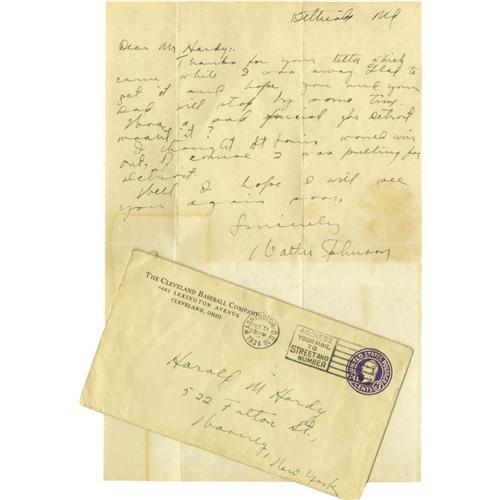 Bethesda Md
Dear Mr Hardy:
Thanks for your letter which
came while I was away. Glad to
get it and hope you and your
Dad will stop by some time.
was a sad for Detroit
wasn't it?
I thought St Louis would win
out, of course I was pulling for
Detroit.
Well I hope I will see
you again soon.
Sincerely
Walter Johnson
THE CLEVELAND BASEBALL COMPANY
6601 LEXINGTON AVENUE
CLEVELAND, OHIO
WASHINGTON, D.C.
OCT 21
1934
ADDRESS
YOUR MAIL
TO
STREET AND
NUMBER
UNITED STATES POSTAGE
CENTS
Harold M Hardy
522 Fulton St.,
Waverly,
New York